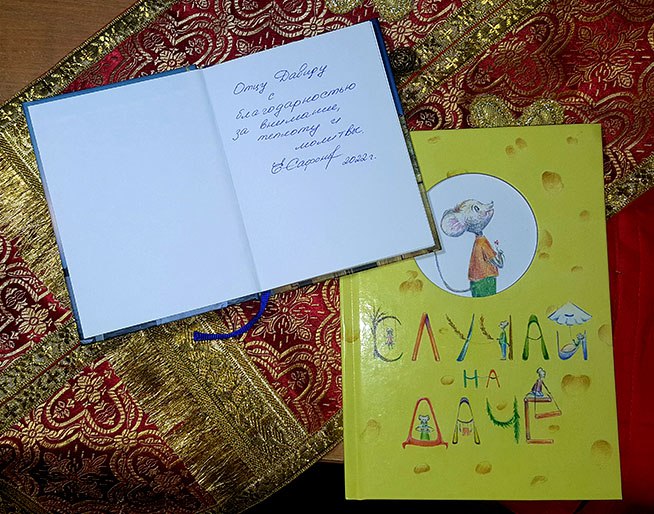 Отцу Давиду
с
благодарностью
за внимание,
теплоту и
молитвы.
2022 г.
СЛУЧАЙ
НА
ДАЧЕ